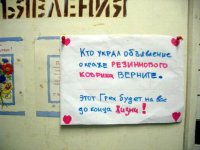 ЯВЛЕНИЯ
Кто украл объявление
о краже РЕЗИНОВОГО
КОВРИКА ВЕРНИТЕ.
Этот Грех будет на вас
до конца Жизни!